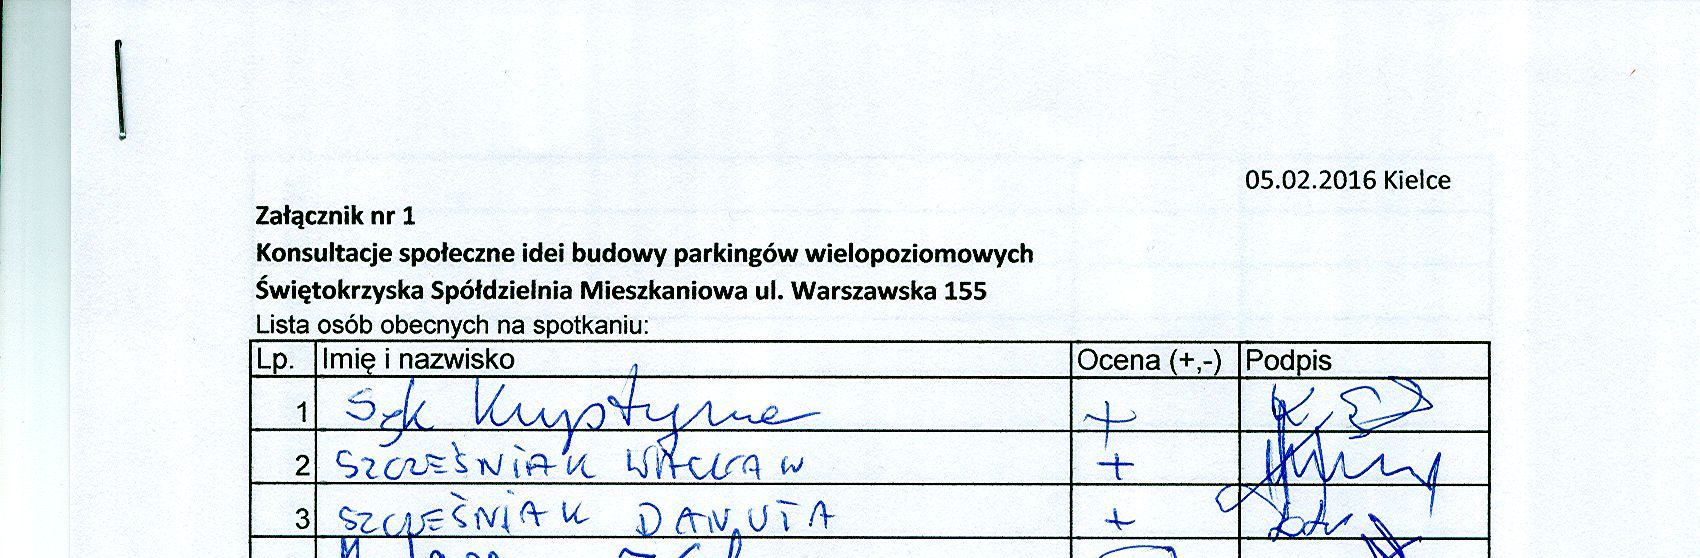 05.02.2016 Kielce
Załącznik nr 1
Konsultacje społeczne idei budowy parkingów wielopoziomowych
Świętokrzyska Spółdzielnia Mieszkaniowa ul. Warszawska 155
Lista osób obecnych na spotkaniu:
Lp. Imię i nazwisko Ocena (+,-) Podpis
1 Sęk Krystyna +
2 SZCZEŚNIAK WACŁAW +
3 SZCZEŚNIAK DANUTA +